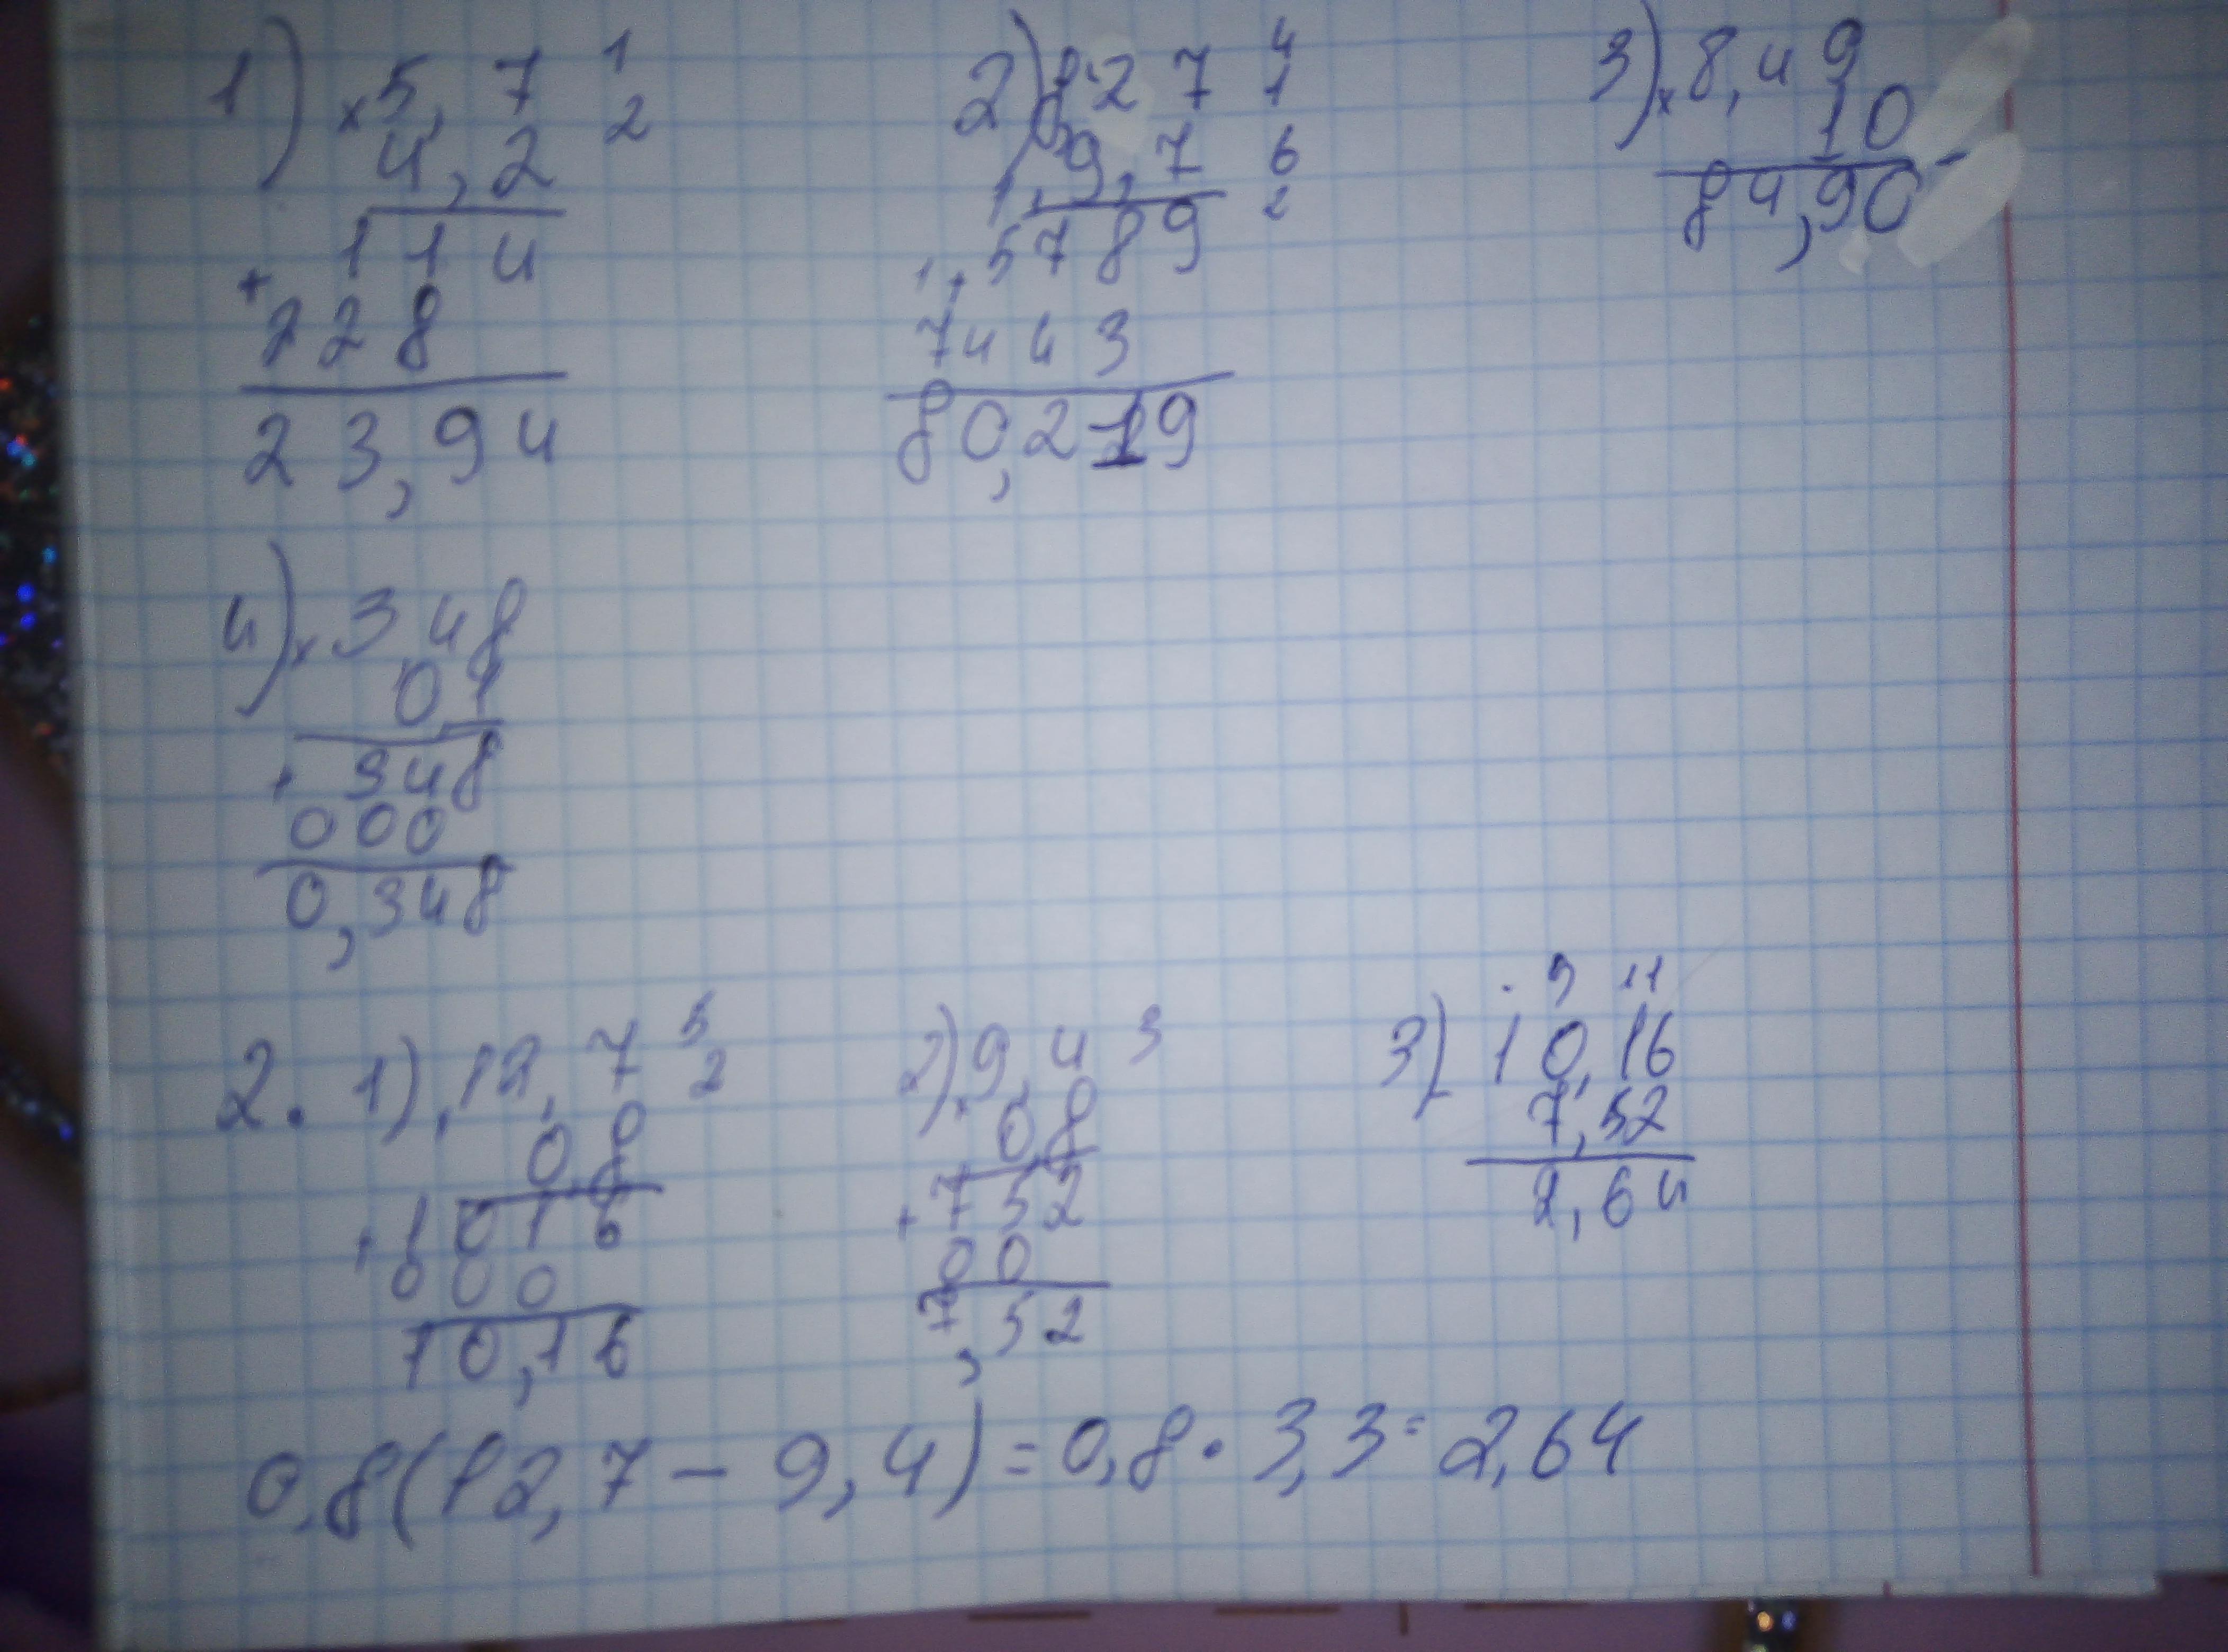 1) × 5,7 1
4,2 2
114
+
228
23,94
2) 8,27 4
1
9,7 6
2
1
5789
1 +
7443
80,219
3) × 8,49
10
84,90
4) × 348
0,1
+ 348
000
0,348
2. 1) 12,7 5
2
0,8
+ 1016
000
10,16
2) × 9,4 3
0,8
+ 752
00
7,52
. 9 11
3) 10,16
7,52
2,64
0,8(12,7 - 9,4) = 0,8 · 3,3 = 2,64